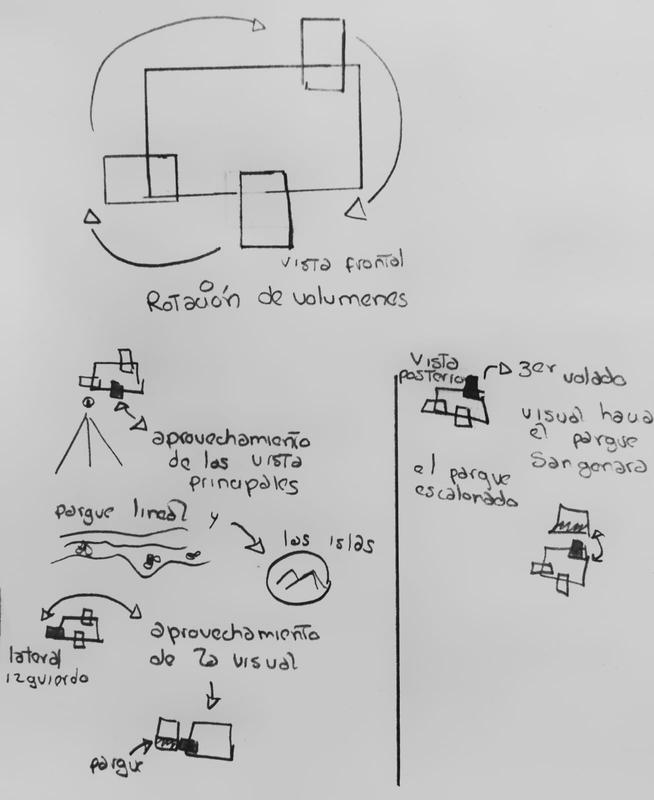 vista frontal
Rotación de volumenes
aprovechamiento
de las vista
principales
parque lineal y
las islas
lateral
izquierdo
aprovechamiento
de la visual
parque
Vista
posterior
3er volado
visual hacia
el parque
San genara
el parque
escalonado